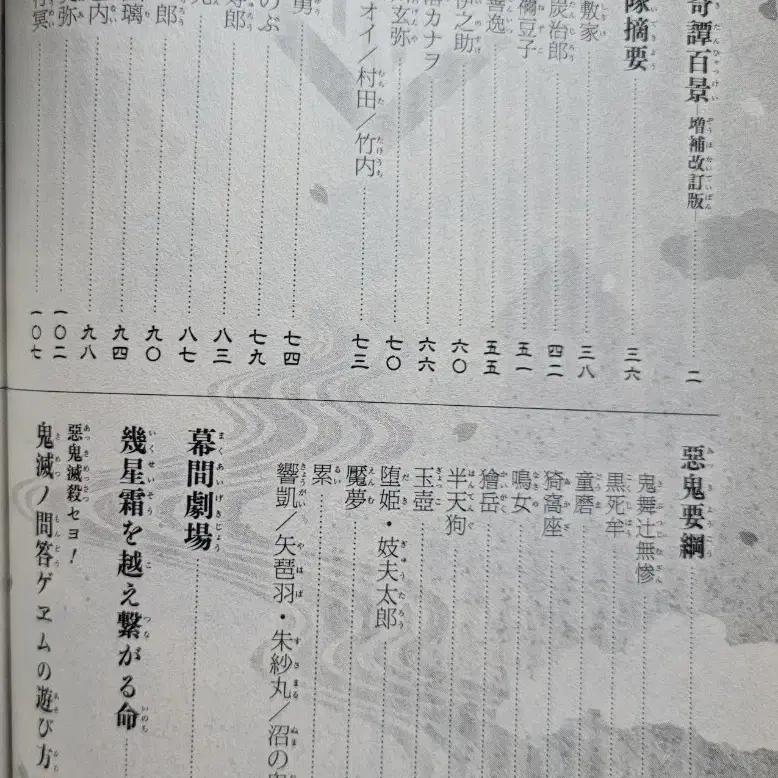 奇譚百景 増補改訂版 二
隊摘要 三六
敷家 三八
炭治郎 四二
禰豆子 五一
善逸 五五
伊之助 六〇
落カナヲ 六六
玄弥 七〇
オイ/村田/竹内 七三
勇 七四
のぶ 七九
寿郎 八三
八七
郎 九〇
璃 九四
内 九八
弥 一〇二
冥 一〇七
惡鬼要綱
鬼舞辻無惨
黒死牟
童磨
猗窩座
鳴女
獪岳
半天狗
玉壺
堕姫・妓夫太郎
魘夢
累
響凱/矢琶羽・朱紗丸/沼の
幕間劇場
幾星霜を越え繋がる命
惡鬼滅殺セヨ!
鬼滅ノ問答ゲヱムの遊び方